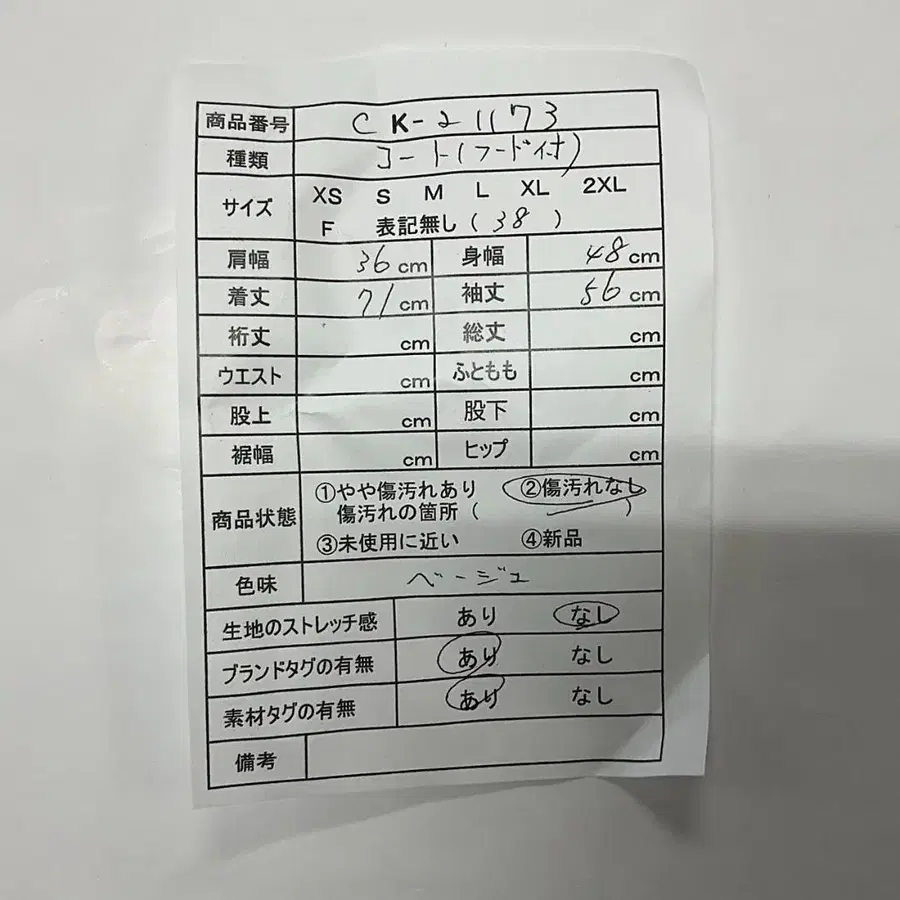 商品番号 CK-21173
種類 コート(フード付)
サイズ XS S M L XL 2XL
F 表記無し(38)
肩幅 36cm 身幅 48cm
着丈 71cm 袖丈 56cm
裄丈 cm 総丈 cm
ウエスト cm ふともも cm
股上 cm 股下 cm
裾幅 cm ヒップ cm
商品状態 ①やや傷汚れあり ②傷汚れなし
傷汚れの箇所( )
③未使用に近い ④新品
色味 ベージュ
生地のストレッチ感 あり なし
ブランドタグの有無 あり なし
素材タグの有無 あり なし
備考